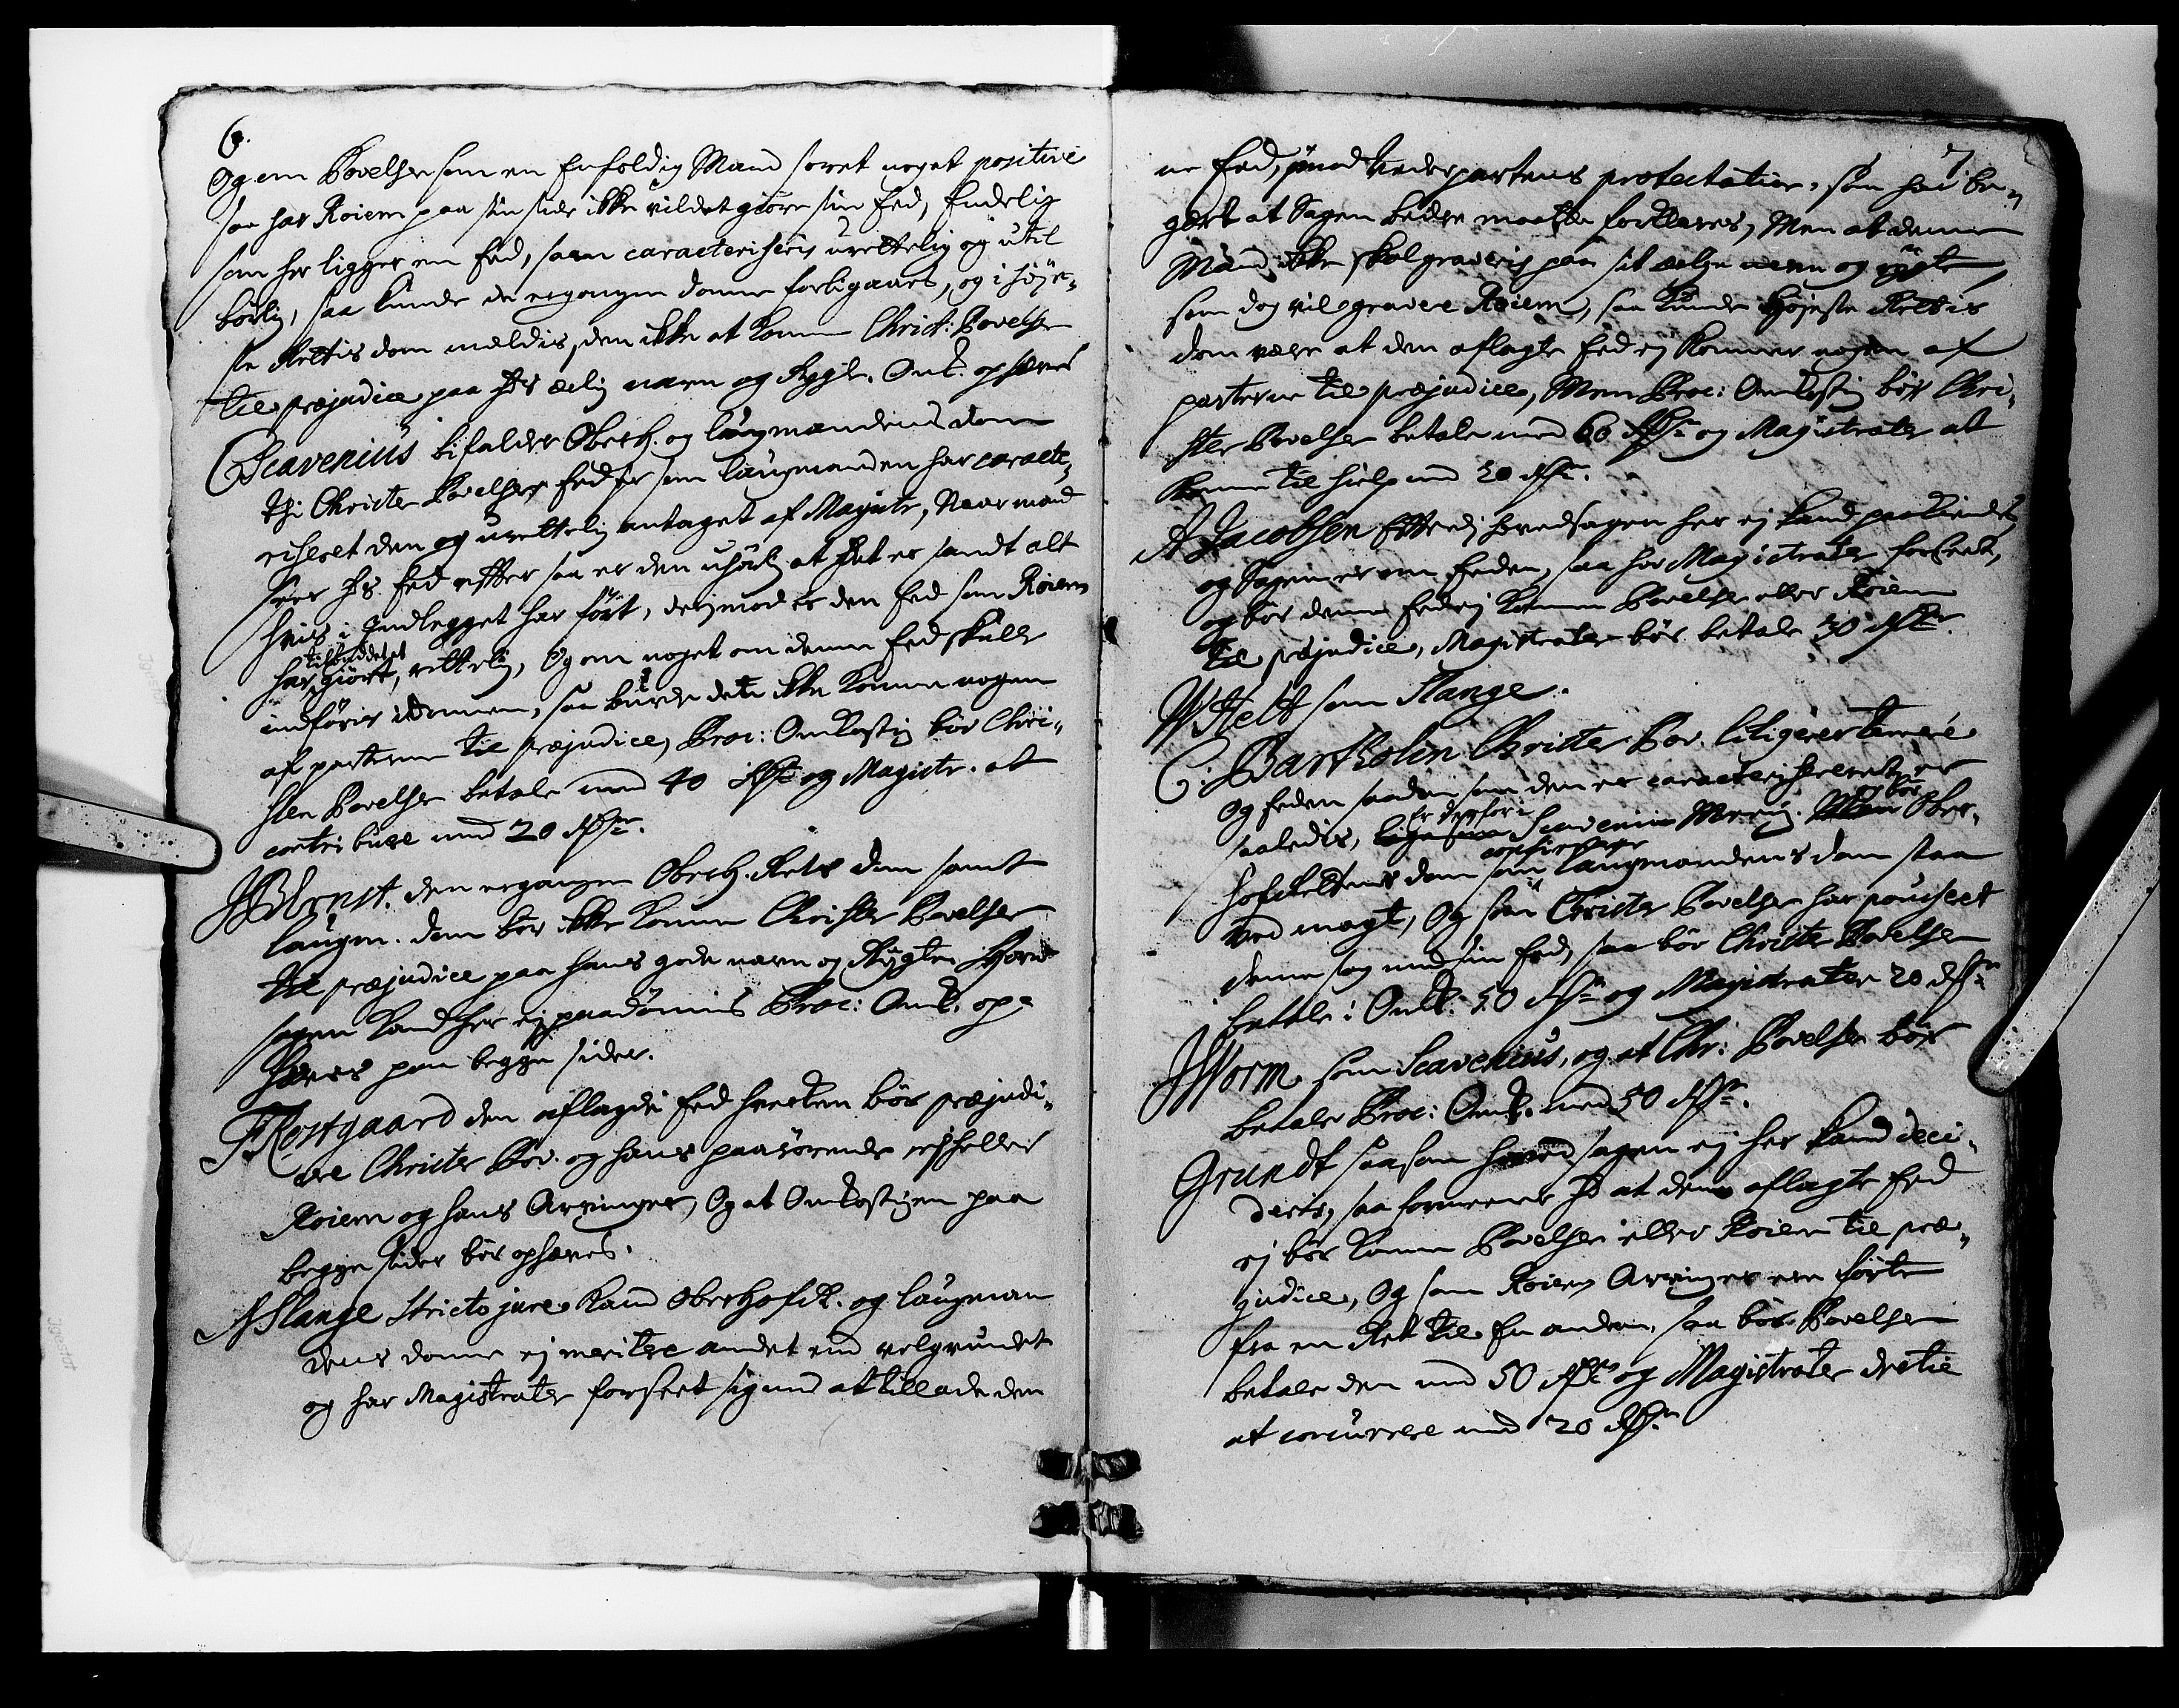 6.
Og om Povelsen som en Enfoldig Mand soret noget positivè
saa har Roiem paa sin side ikke vildet giöre sin Eed, Endelig
som her ligger en Eed, saan caracteriseris urettelig og util
börlig, saa kunde de ergangne domme forbigaaes, og i höje¬
ste Rettis dom meldis, den ikke at komme Christ: Povelsen
til præjudice paa Hs ærlig navn og Rygte. Omk. ophæves
Scavenius bifalder Oberh. og laugmandens dom
thi Christen Povelsens Eed er som laugmanden har caracte¬
riseret den og urettelig antaget af Magistr, Naar mand
seer Hs Eed effter saa er den at Det er sandt alt
hvis i Indlegget har fört, derimod er den Eed som Roiem
har tilbuddet at giort, rettelig, Og om noget om denne Eed skulle
indföris i dommen, saa burde dete ikke komme nogen
af parterne til præjudice, Proc: Omkostnig bör Chri¬
sten Povelsen betale med 40 Rdr og Magistr. at
contribuere med 20 Rdr.
JB Ernst. den ergangne Oberh. Rets dom samt
laugm. dom bör ikke komme Christen Povelsen
til præjudice paa hans gode navn og Rygte Hoved
sagen kand her ej paadömmis Proc: Omk. op¬
hæves paa begge sider.
F Rostgaard den aflagde Eed hverken bör præjudi¬
cere Christen Pov. og hans paarörende ej heller
Roiem og hans Arvinger, Og at Omkostnigen paa
begge sider bör ophæves.
N Slange Stricto jure kand Oberhofr. og laugman
dens domme ej meritere andet end velgrundet
og har Magistraten forseet sig med at tillade den
7
ne Eed, imod Vederpartens protestation, som har be¬
gært at Sagen bedre maatte forklares, Men at denne
Mand ikke skal graveris paa sit ærlige navn og rögte,
som dog vil gravere Roiem, saa kunde Höjeste Rettis
dom være at den aflagte Eed ej kommer nogen af
parterne til præjudice, Men Proc: Omkostnig bör Chri¬
sten Povelsen betale med 60 Rdr og Magistraten at
komme til hielp med 20 Rdr.
A Jacobsen Efterdj hovedsagen her ej kand paakiendes
og Sagen er om Eeden, saa har Magistraten forseet,
og bör denne Eed ej komme Povelsen eller Roiem
til præjudice, Magistraten bör betale 30 Rdr.
W Helt som Slange.
C. Bartholin Christen Pov. litigerer temerè
og Eeden saadan som den er caracteriseret er
saaledis, er derfor i Scavenii Menig. og bör Ober¬
hofrettens dom som confirmerer laugmandens dom staa
ved magt, Og som Christen Povelsen har pousseret
denne sag med sin Eed, saa bör Christen Povelsen
betale i Omk: 50 Rdr og Magistraten 20 Rdr
J Worm som Scavenius, og at Chr: Povelsen bör
betale Proc: Omk. med 50 Rdr.
Grundt saasom hovedsagen ej her kand deci¬
deris, saa formeener Hd at denne aflagte Eed
ej bör komme Povelsen eller Roiem til præ¬
judice, Og som Roiems Arvinger ere förte
fra en Ret til En anden, saa bör Povelsen
betale dem med 50 Rdr og Magistraten dertil
at concurrere med 20 Rdr